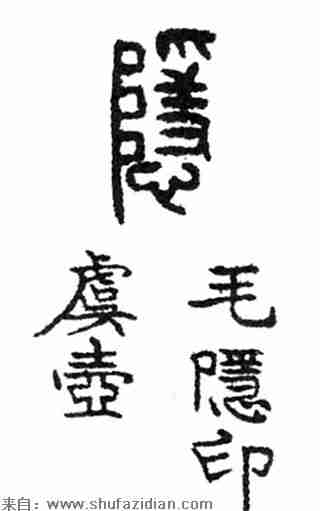 隱
毛隱印
虞壺
来自：www.shufazidian.com